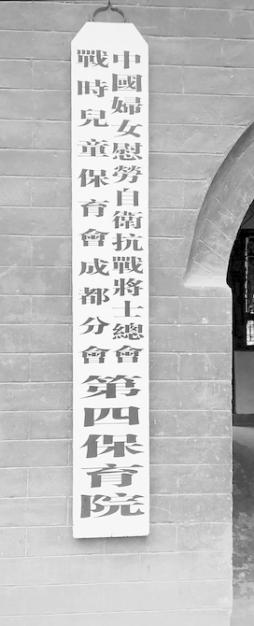 中國婦女慰勞自衛抗戰將士總會
戰時兒童保育會成都分會
第四保育院